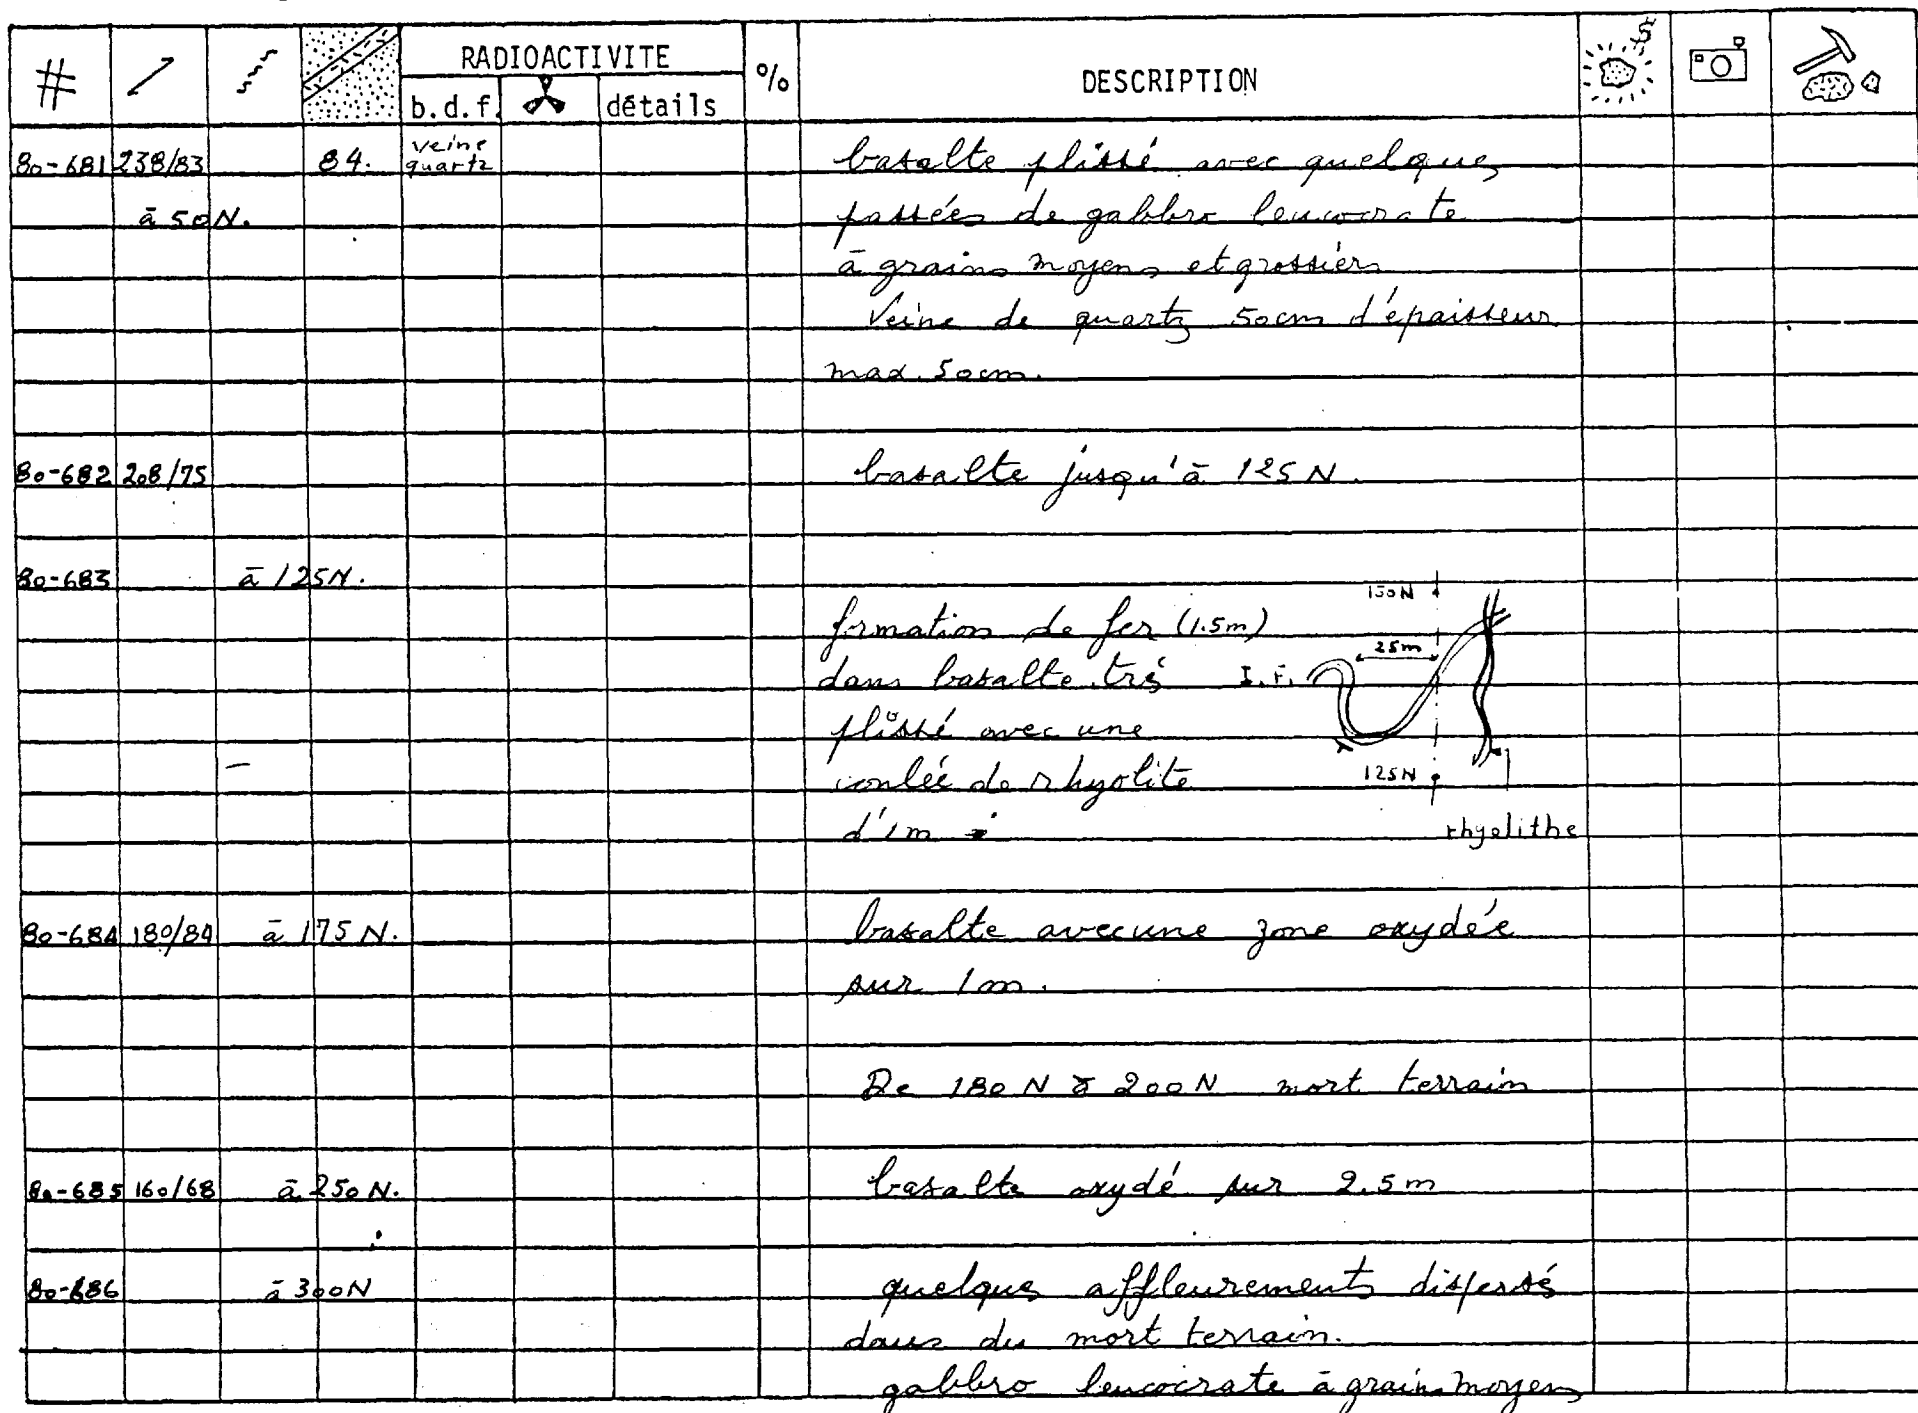 # RADIOACTIVITE % DESCRIPTION $
b.d.f. détails
80-681 238/83 84. veine quartz basalte plissé avec quelques
à 50N. passées de gabbro leucocrate
à grains moyens et grossiers
Veine de quartz 50cm d'épaisseur
max. 50cm.
80-682 208/75 basalte jusqu'à 125N.
80-683 à 125N.
150N
formation de fer (1.5m) 25m
dans basalte très I.F.
plissé avec une
coulée de rhyolite 125N
d'1m rhyolithe
80-684 180/84 à 175N. basalte avec une zone oxydée
sur 1m.
De 180N à 200N mort terrain
80-685 160/68 à 250N. basalte oxydé sur 2.5m
80-686 à 300N quelques affleurements dispersés
dans du mort terrain.
gabbro leucocrate à grains moyens